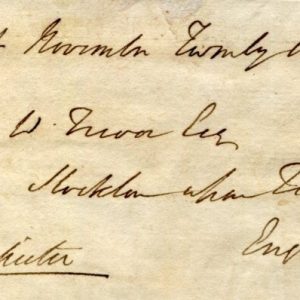 November Twenty
W. Trevor Esq
Stockton upon Te
Eng